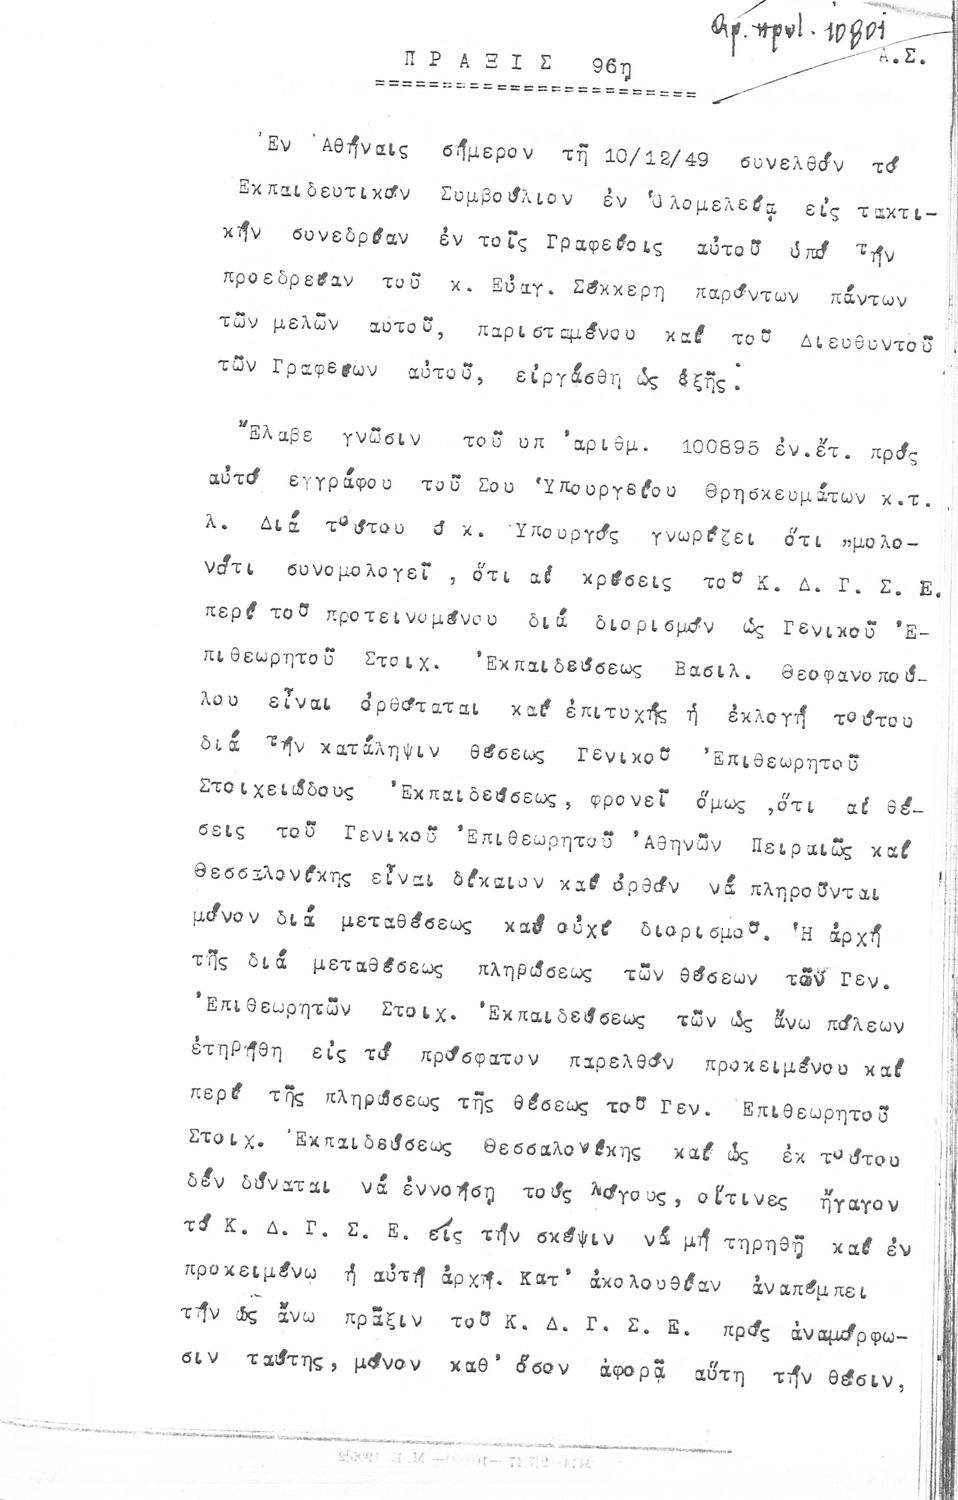 Αρ. πρωτ. 10801
Α.Σ.
ΠΡΑΞΙΣ 96η
Ἐν Ἀθήναις σήμερον τῇ 10/12/49 συνελθόν τό
Ἐκπαιδευτικόν Συμβούλιον ἐν Ὁλομελείᾳ εἰς τακτι-
κήν συνεδρίαν ἐν τοῖς Γραφείοις αὐτοῦ ὑπό τήν
προεδρείαν τοῦ κ. Εὐαγ. Σέκκερη παρόντων πάντων
τῶν μελῶν αὐτοῦ, παρισταμένου καί τοῦ Διευθυντοῦ
τῶν Γραφείων αὐτοῦ, εἰργάσθη ὡς ἑξῆς:
Ἔλαβε γνῶσιν τοῦ υπ' ἀριθμ. 100895 ἐν.ἔτ. πρός
αὐτό εγγράφου τοῦ Σου Ὑπουργείου Θρησκευμάτων κ.τ.
λ. Διά τούτου ὁ κ. Ὑπουργός γνωρίζει ὅτι „μολο-
νότι συνομολογεῖ, ὅτι αἱ κρίσεις τοῦ Κ. Δ. Γ. Σ. Ε.
περί τοῦ προτεινομένου διά διορισμόν ὡς Γενικοῦ Ἐ-
πιθεωρητοῦ Στοιχ. Ἐκπαιδεύσεως Βασιλ. Θεοφανοπού-
λου εἶναι ὀρθόταται καί ἐπιτυχής ἡ ἐκλογή τούτου
διά τήν κατάληψιν θέσεως Γενικοῦ Ἐπιθεωρητοῦ
Στοιχειώδους Ἐκπαιδεύσεως, φρονεῖ ὅμως ,ὅτι αἱ θέ-
σεις τοῦ Γενικοῦ Ἐπιθεωρητοῦ Ἀθηνῶν Πειραιῶς καί
Θεσσαλονίκης εἶναι δίκαιον καί ὀρθόν νά πληροῦνται
μόνον διά μεταθέσεως καί οὐχί διορισμοῦ. Ἡ ἀρχή
τῆς διά μεταθέσεως πληρώσεως τῶν θέσεων τῶν Γεν.
Ἐπιθεωρητῶν Στοιχ. Ἐκπαιδεύσεως τῶν ὡς ἄνω πόλεων
ἐτηρήθη εἰς τό πρόσφατον παρελθόν προκειμένου καί
περί τῆς πληρώσεως τῆς θέσεως τοῦ Γεν. Ἐπιθεωρητοῦ
Στοιχ. Ἐκπαιδεύσεως Θεσσαλονίκης καί ὡς ἐκ τούτου
δέν δύναται νά ἐννοήσῃ τούς λόγους, οἵτινες ἤγαγον
τό Κ. Δ. Γ. Σ. Ε. εἰς τήν σκέψιν νά μή τηρηθῇ καί ἐν
προκειμένῳ ἡ αὐτή ἀρχή. Κατ' ἀκολουθίαν ἀναπέμπει
τήν ὡς ἄνω πρᾶξιν τοῦ Κ. Δ. Γ. Σ. Ε. πρός ἀναμόρφω-
σιν ταύτης, μόνον καθ' ὅσον ἀφορᾷ αὕτη τήν θέσιν,